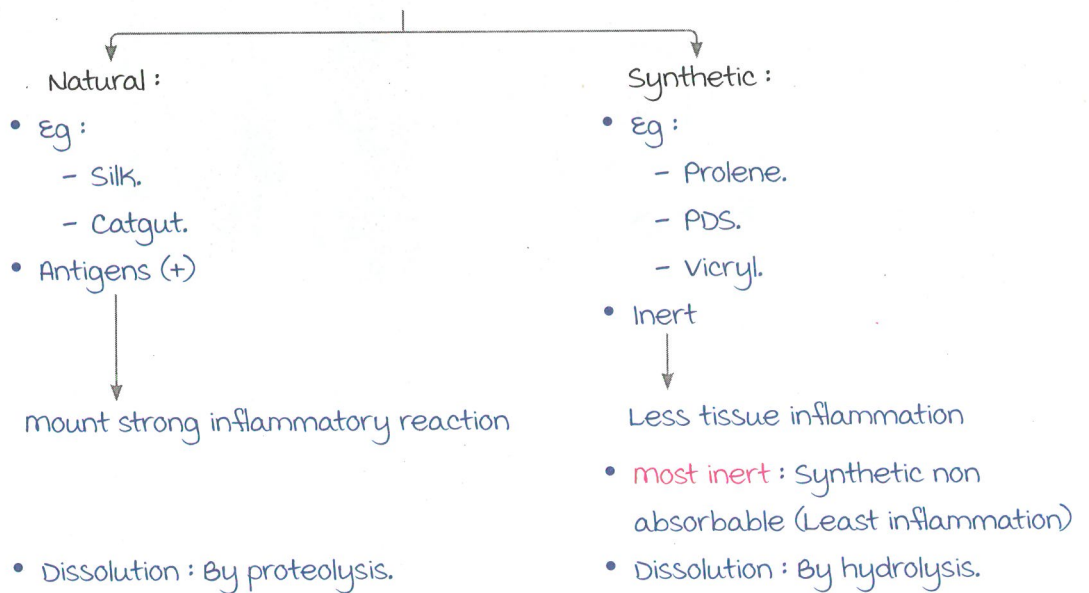 Natural :
• Eg :
– Silk.
– Catgut.
• Antigens (+)
mount strong inflammatory reaction
• Dissolution : By proteolysis.
Synthetic :
• Eg :
– Prolene.
– PDS.
– Vicryl.
• Inert
Less tissue inflammation
• most inert : Synthetic non
absorbable (Least inflammation)
• Dissolution : By hydrolysis.